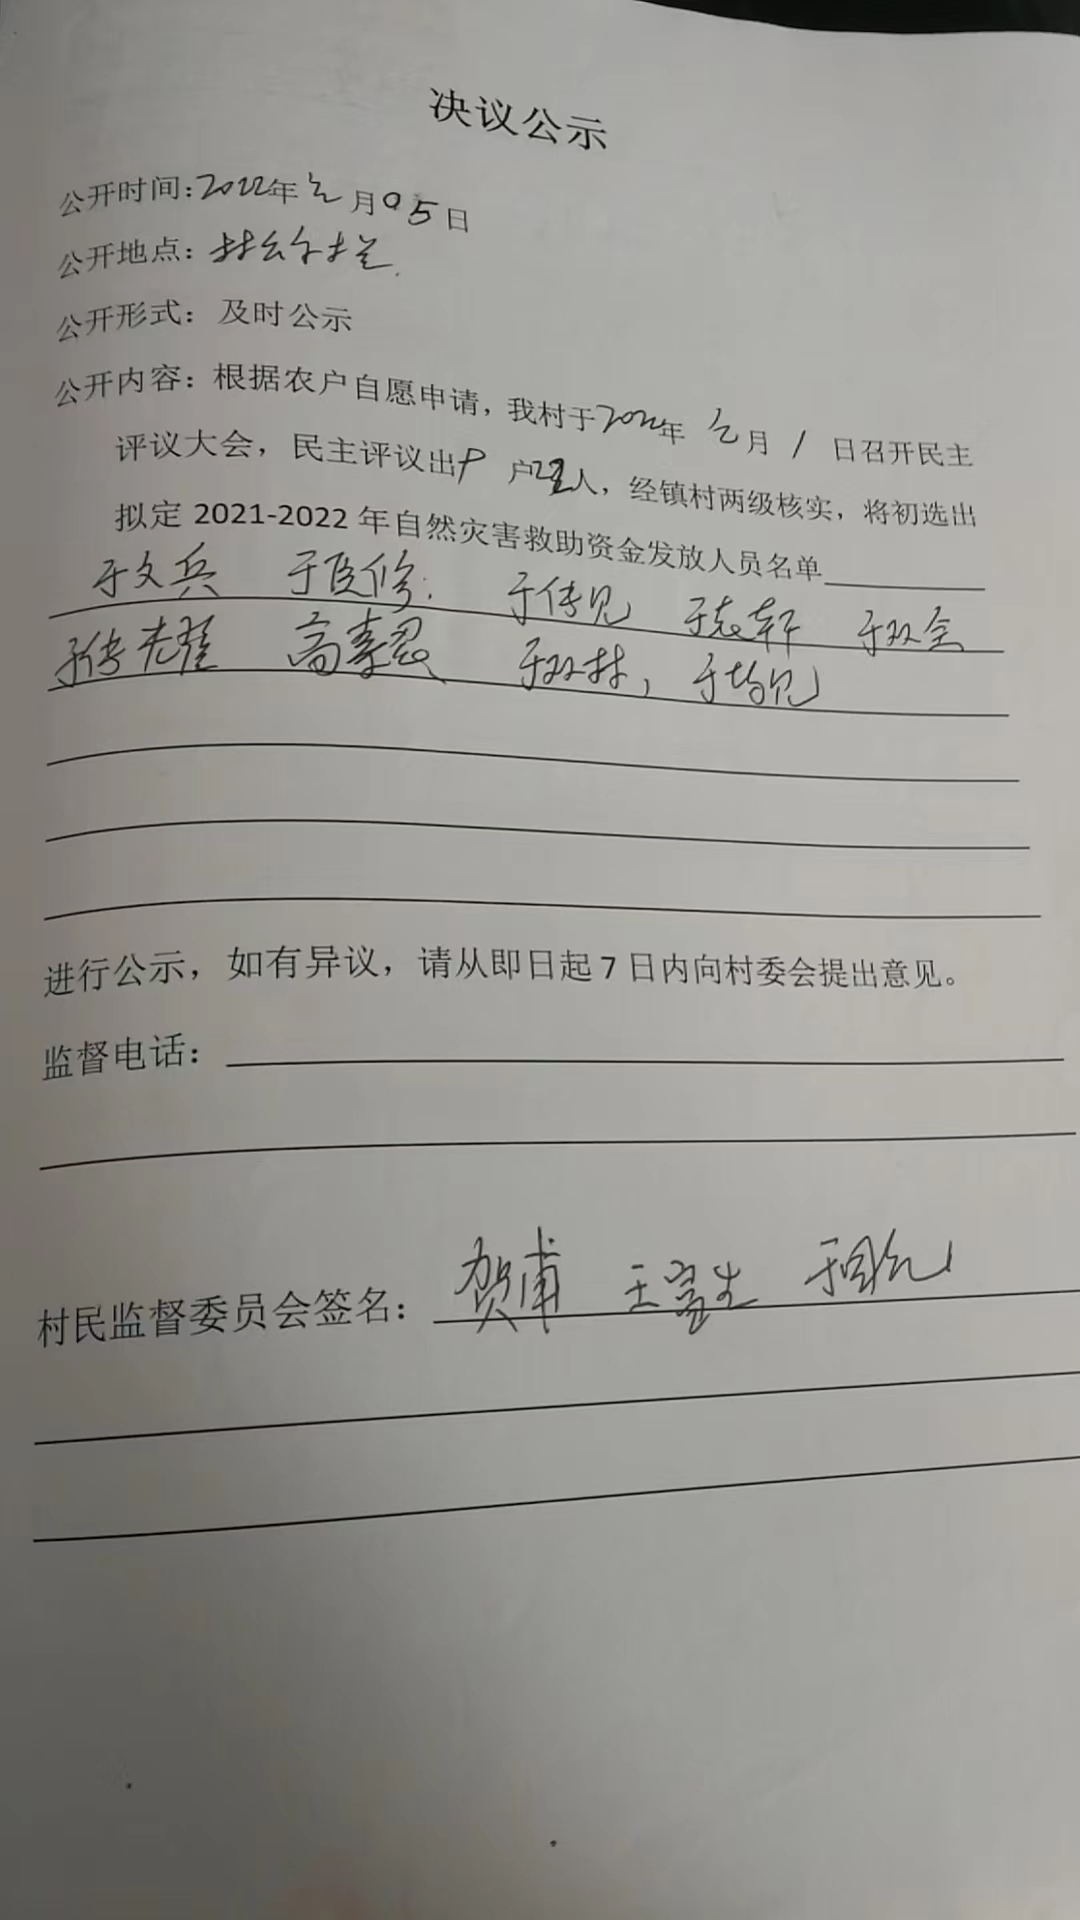 决议公示
公开时间:2022年 月05日
公开地点:村公示栏
公开形式:及时公示
公开内容:根据农户自愿申请,我村于2022年 月1日召开民主
评议大会,民主评议出 户 人,经镇村两级核实,将初选出
拟定2021-2022年自然灾害救助资金发放人员名单
于文兵 于 修 于传见 于志轩 于双全
于传耀 高素 于双林, 于均
进行公示,如有异议,请从即日起7日内向村委会提出意见。
监督电话:
村民监督委员会签名:贺甫 王富生 于